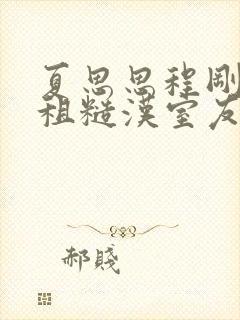 夏思思程剛
租糙漢室友
郝賤